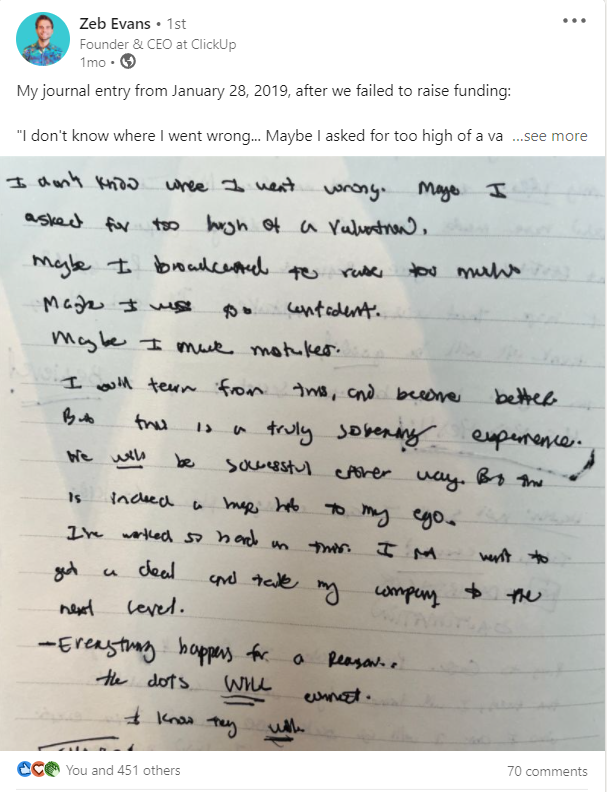 Zeb Evans • 1st
Founder & CEO at ClickUp
1mo •
My journal entry from January 28, 2019, after we failed to raise funding:
"I don't know where I went wrong... Maybe I asked for too high of a va ...see more
I don't know where I went wrong. Maybe I
asked for too high of a valuation.
Maybe I to raise too much
Maybe I was too confident.
Maybe I made mistakes.
I will learn from this, and become better.
But this is a truly sobering experience.
We will be successful either way. But this
is indeed a huge hit to my ego.
I've worked so hard on this. I want to
get a deal and take my company to the
next level.
– Everything happens for a reason..
the dots WILL connect.
I know they will
You and 451 others
70 comments